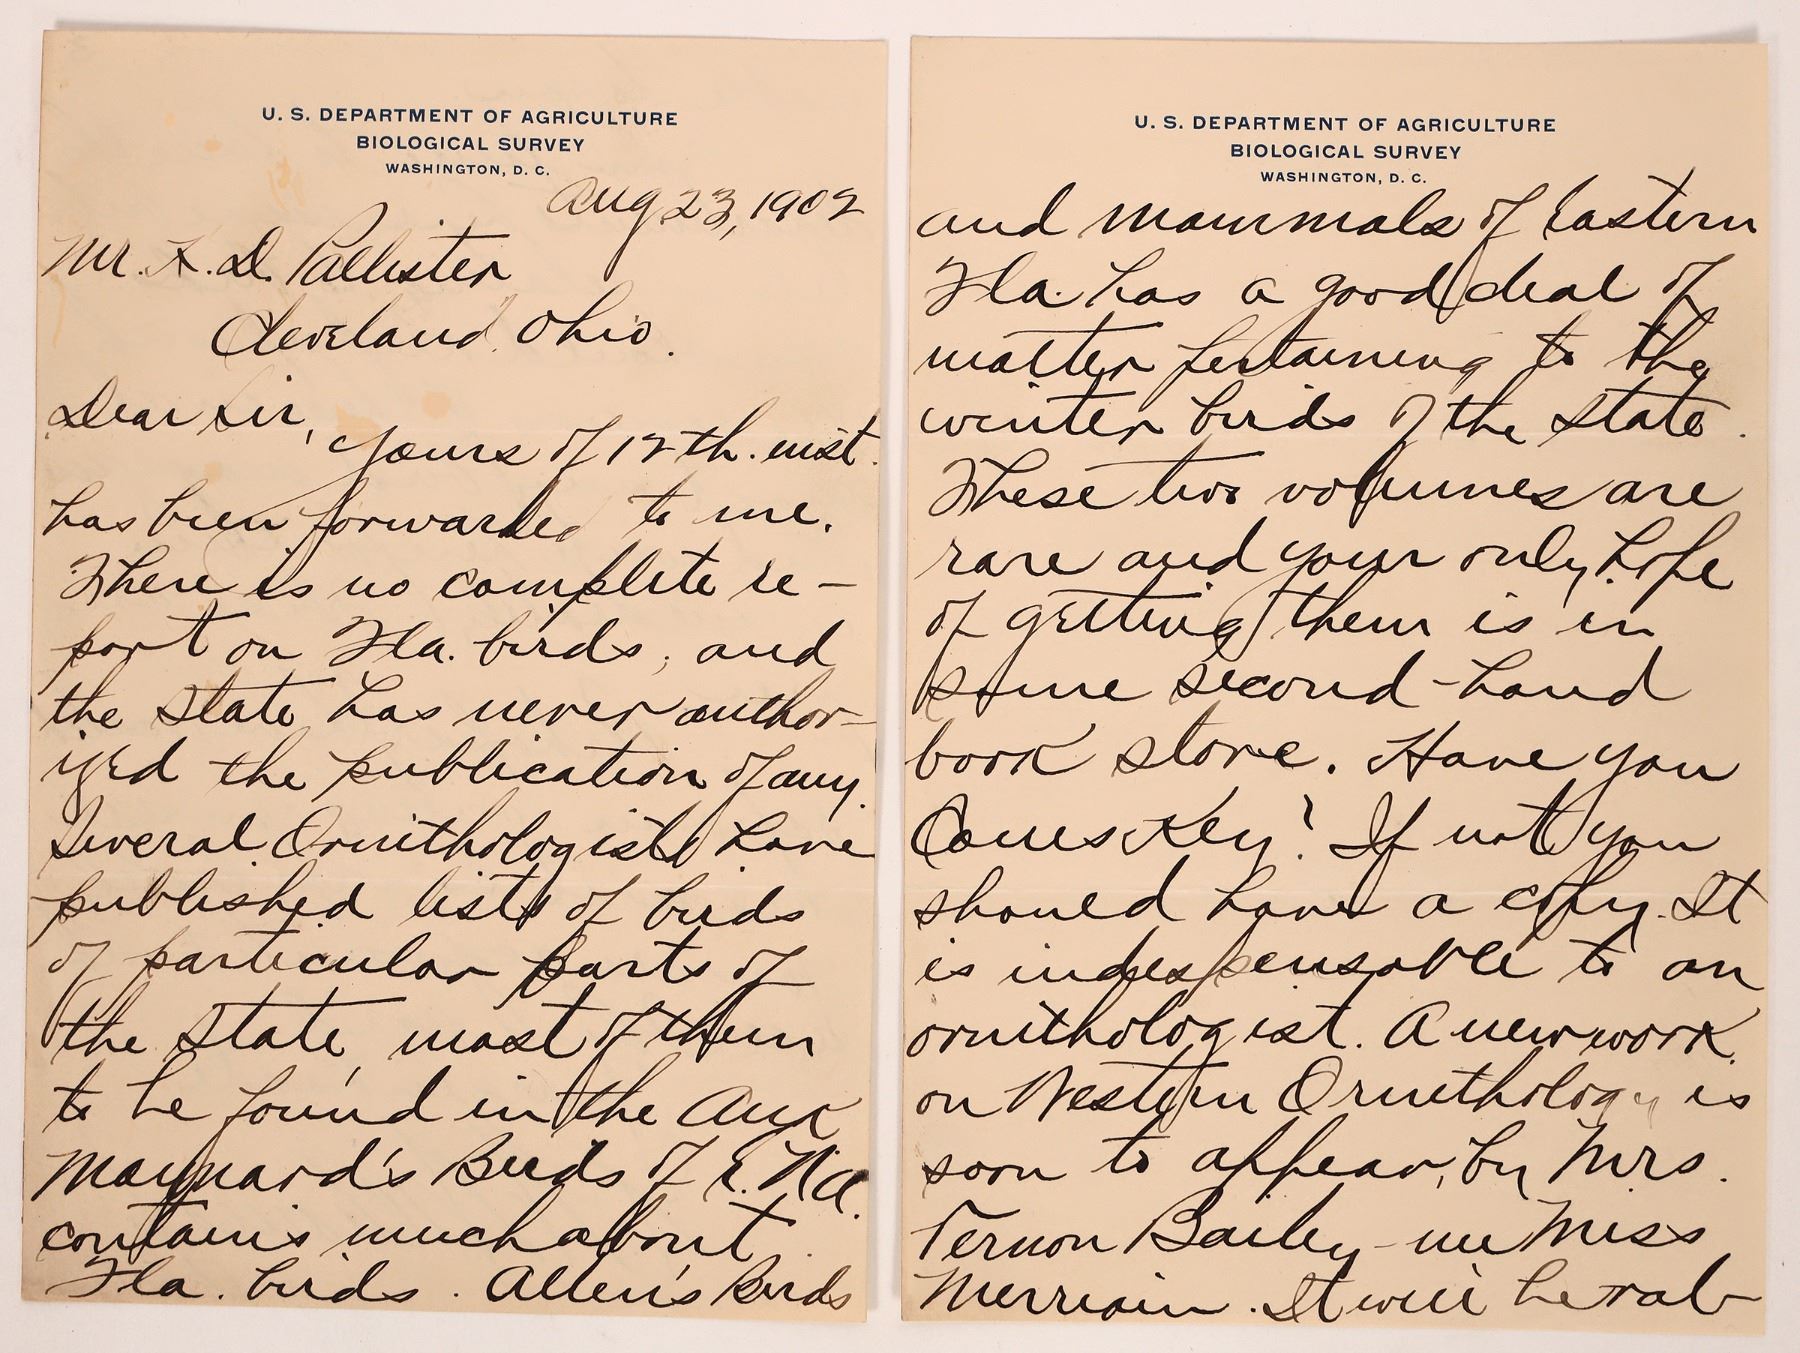 U. S. DEPARTMENT OF AGRICULTURE
BIOLOGICAL SURVEY
WASHINGTON, D. C.
Aug 23, 1902
Mr. A. D. Pallister
Cleveland, Ohio.
Dear Sir,
Yours of 12th. inst.
has been forwarded to me.
There is no complete re-
port on Fla. birds, and
the State has never author-
ized the publication of any.
Several Ornithologists have
published lists of birds
of particular parts of
the State, most of them
to be found in the Auk
Maynard's Birds of E. N.A.
contains much about
Fla. birds. Allen's Birds
U. S. DEPARTMENT OF AGRICULTURE
BIOLOGICAL SURVEY
WASHINGTON, D. C.
and Mammals of Eastern
Fla. has a good deal of
matter pertaining to the
winter birds of the State.
These two volumes are
rare and your only hope
of getting them is in
some second-hand
book store. Have you
Coues Key? If not you
should have a copy. It
is indespensable to an
ornithologist. A new work
on Western Ornithology is
soon to appear, by Mrs.
Vernon Bailey - nee Miss
Merriam. It will be val-